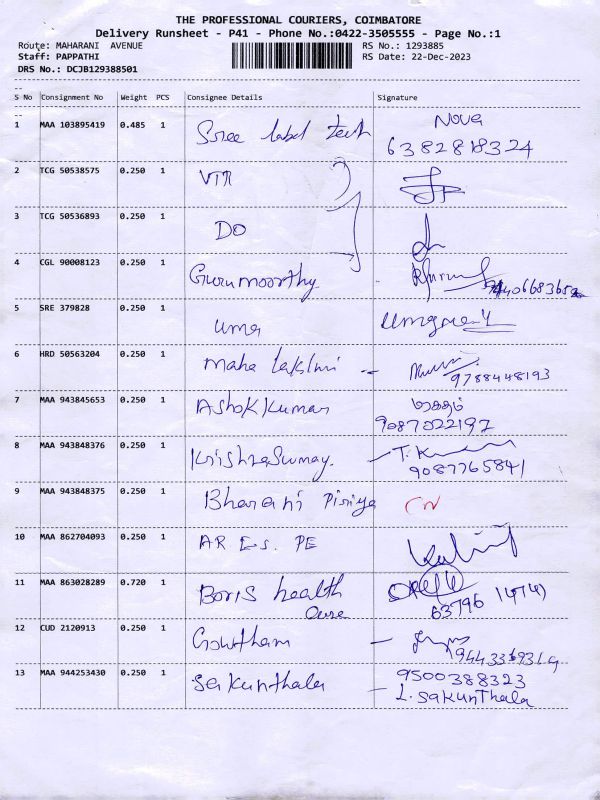 THE PROFESSIONAL COURIERS, COIMBATORE
Delivery Runsheet - P41 - Phone No.:0422-3505555 - Page No.:1
Route: MAHARANI AVENUE RS No.: 1293885
Staff: PAPPATHI RS Date: 22-Dec-2023
DRS No.: DCJB129388501
S No Consignment No Weight PCS Consignee Details Signature
1 MAA 103895419 0.485 1 Sree label tech Nova
6382818324
2 TCG 50538575 0.250 1 VTR
3 TCG 50536893 0.250 1 DO
4 CGL 90008123 0.250 1 Gurumoorthy
5 SRE 379828 0.250 1 uma
6 HRD 50563204 0.250 1 maha lakshmi --
9788448193
7 MAA 943845653 0.250 1 AshokKumar
9087022197
8 MAA 943848376 0.250 1 KrishnaSwamy.
9087765841
9 MAA 943848375 0.250 1 Bharani Piriya
10 MAA 862704093 0.250 1 AR E.s. PE
11 MAA 863028289 0.720 1 Boris health
Care
12 CUD 2120913 0.250 1 Gowtham
13 MAA 944253430 0.250 1 Sakunthala 9500388323
L. Sakunthala